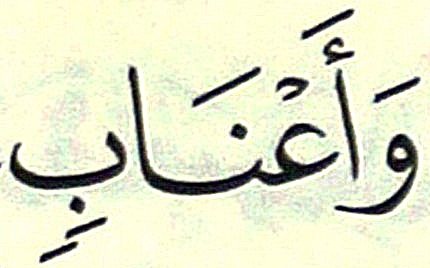 وَأَعْنَابِ